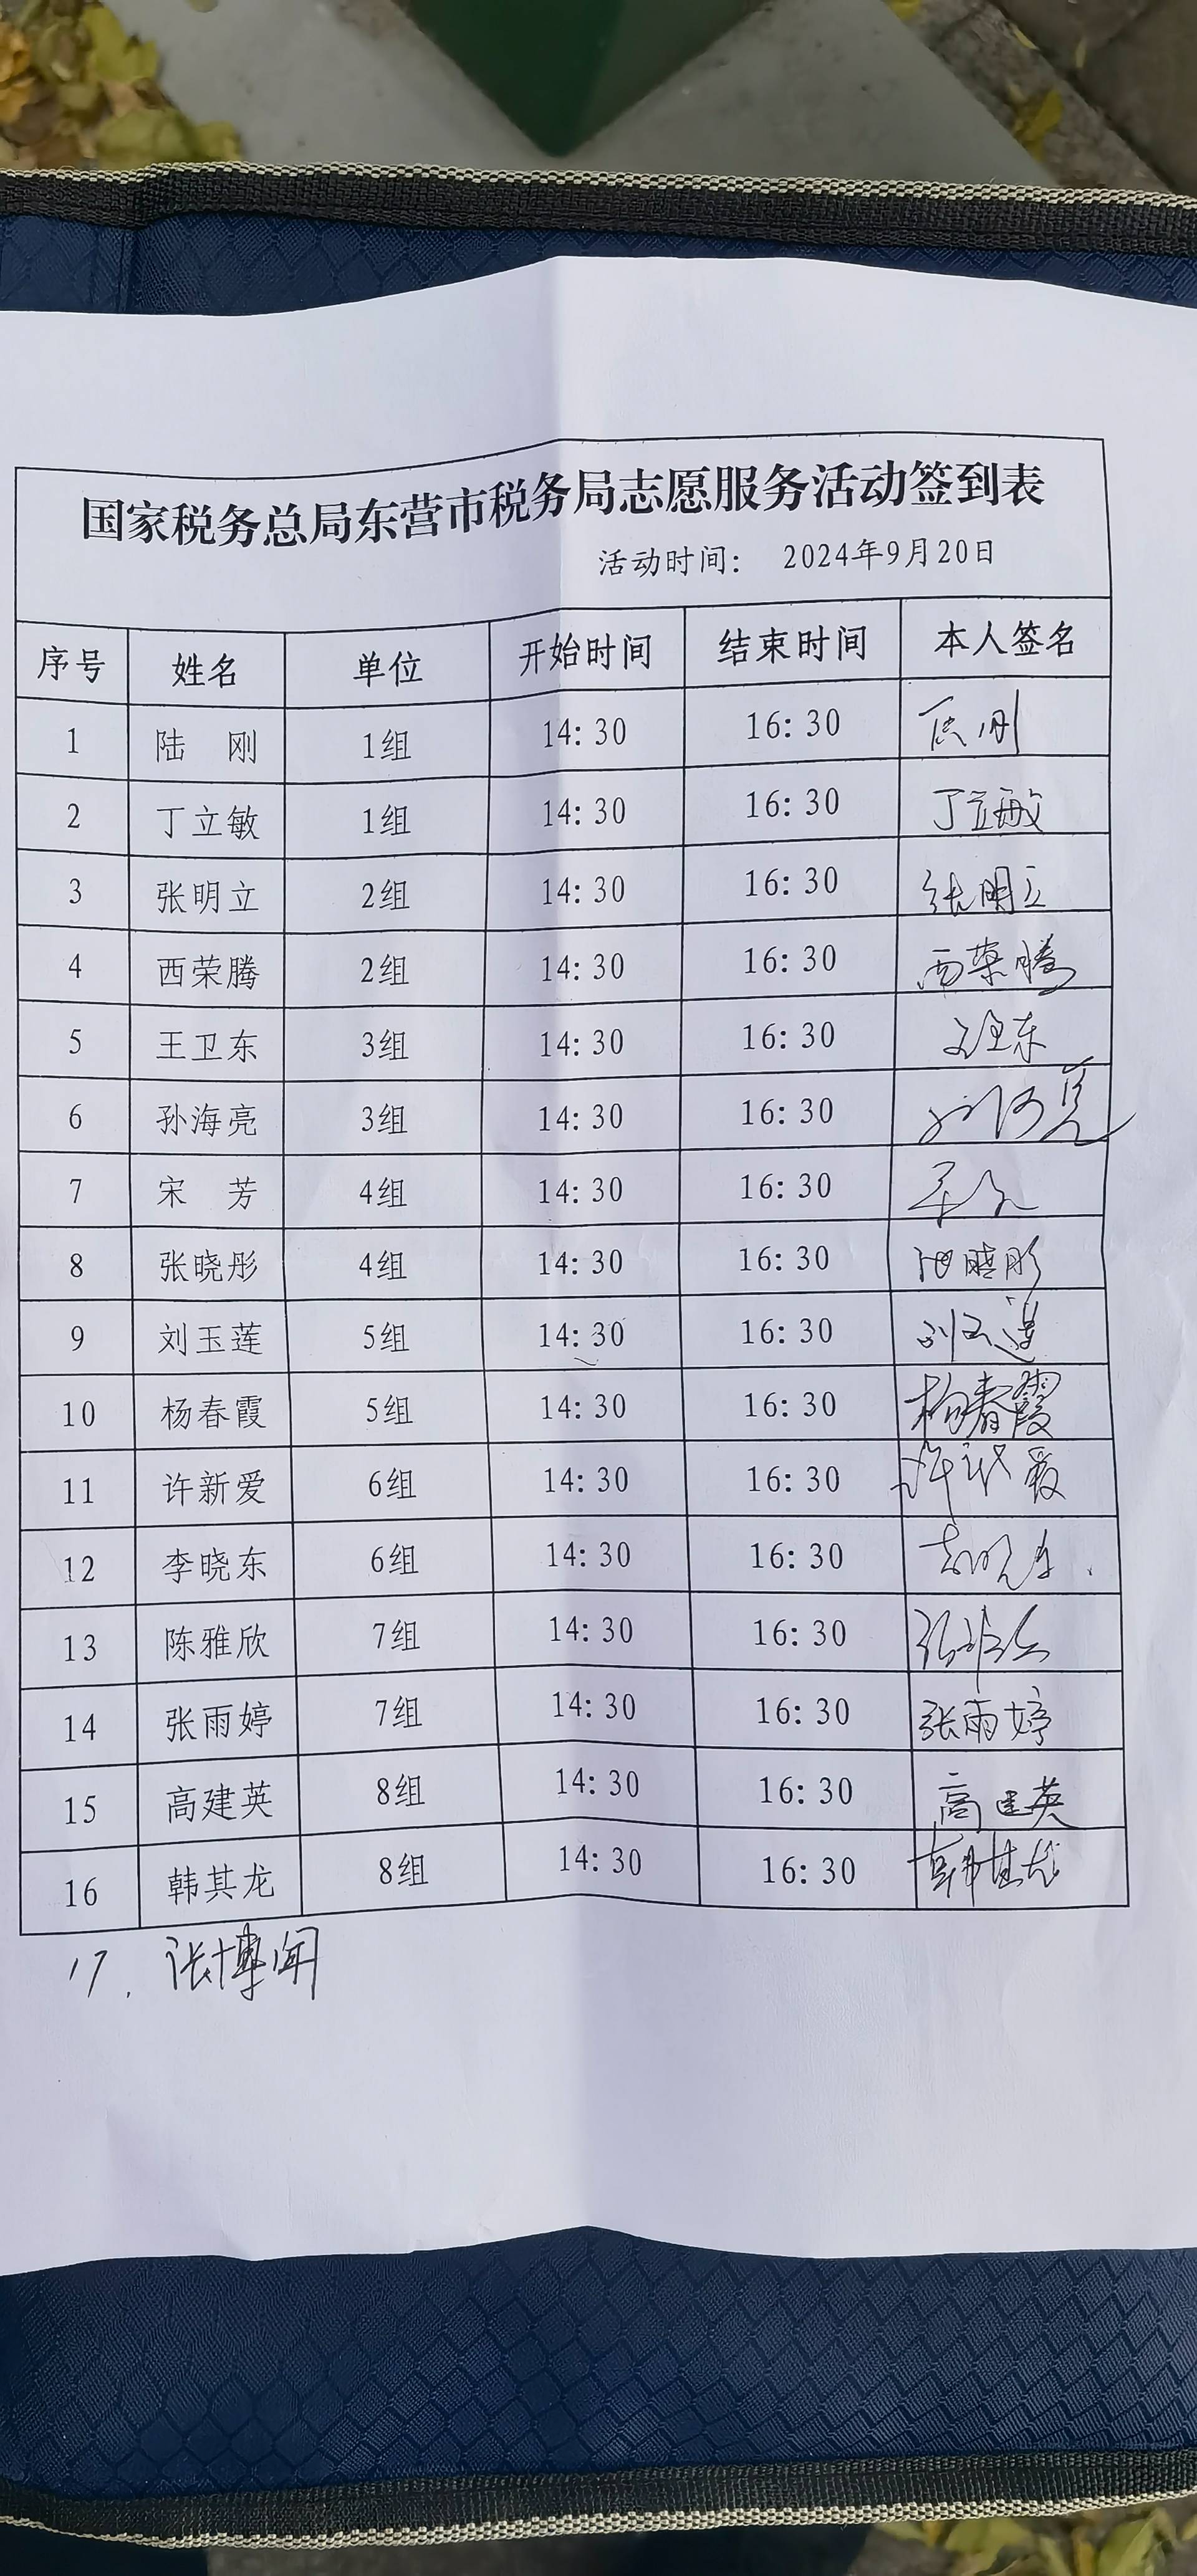 国家税务总局东营市税务局志愿服务活动签到表
活动时间： 2024年9月20日
序号 姓名 单位 开始时间 结束时间 本人签名
1 陆 刚 1组 14:30 16:30
2 丁立敏 1组 14:30 16:30 丁立敏
3 张明立 2组 14:30 16:30 张明立
4 西荣腾 2组 14:30 16:30 西荣腾
5 王卫东 3组 14:30 16:30
6 孙海亮 3组 14:30 16:30
7 宋 芳 4组 14:30 16:30
8 张晓彤 4组 14:30 16:30 张晓彤
9 刘玉莲 5组 14:30 16:30 刘玉莲
10 杨春霞 5组 14:30 16:30 杨春霞
11 许新爱 6组 14:30 16:30 许新爱
12 李晓东 6组 14:30 16:30
13 陈雅欣 7组 14:30 16:30
14 张雨婷 7组 14:30 16:30 张雨婷
15 高建英 8组 14:30 16:30 高建英
16 韩其龙 8组 14:30 16:30 韩其龙
17. 张博闻